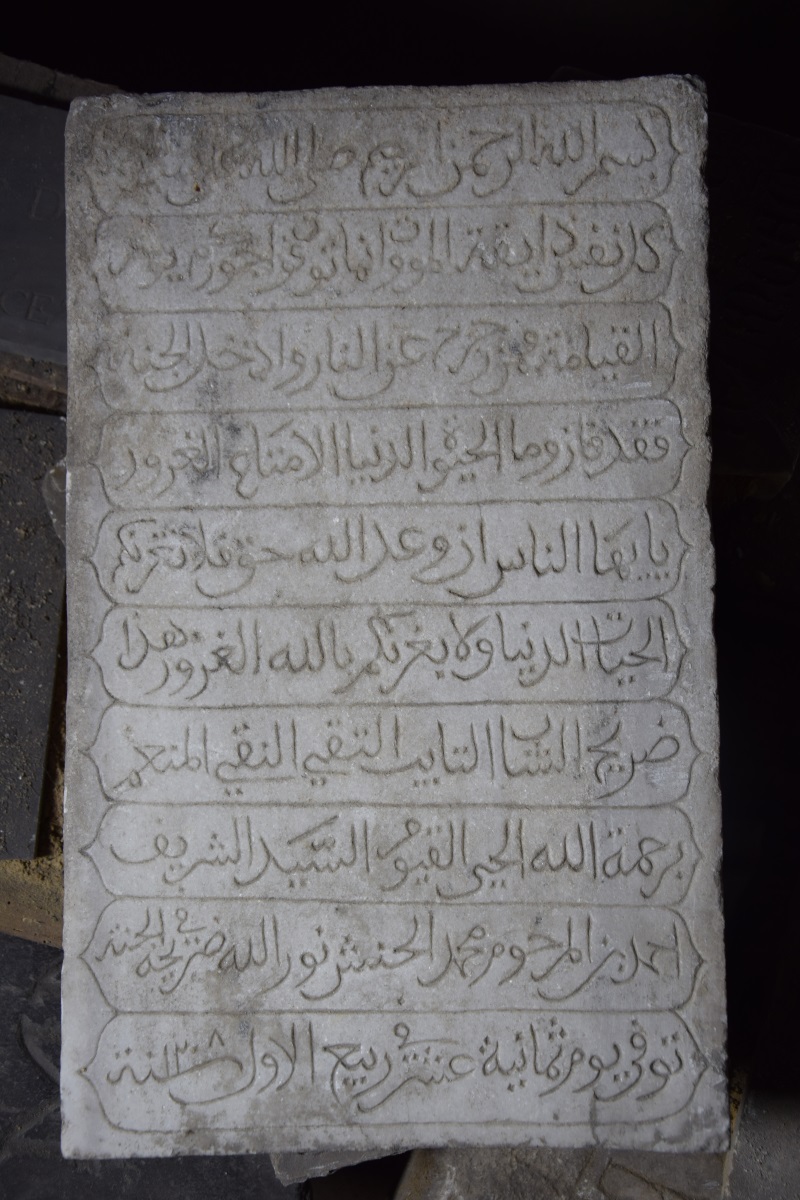 بسم الله الرحمن الرحيم صلى الله على
كل نفس ذايقة الموت وانما توفون اجوركم يوم
القيامة فمن زحزح عن النار وادخل الجنة
فقد فاز وما الحيوة الدنيا الا متاع الغرور
يايها الناس ان وعد الله حق فلا تغرنكم
الحيات الدنيا ولا يغرنكم بالله الغرور هذا
ضريح الشاب التايب التقي النقي المنعم
برحمة الله الحي القيوم السيد الشريف
احمد بن المرحوم محمد الحنش نور الله ضريحه في الجنة
توفي يوم ثمانية عشر في ربيع الاول سنة